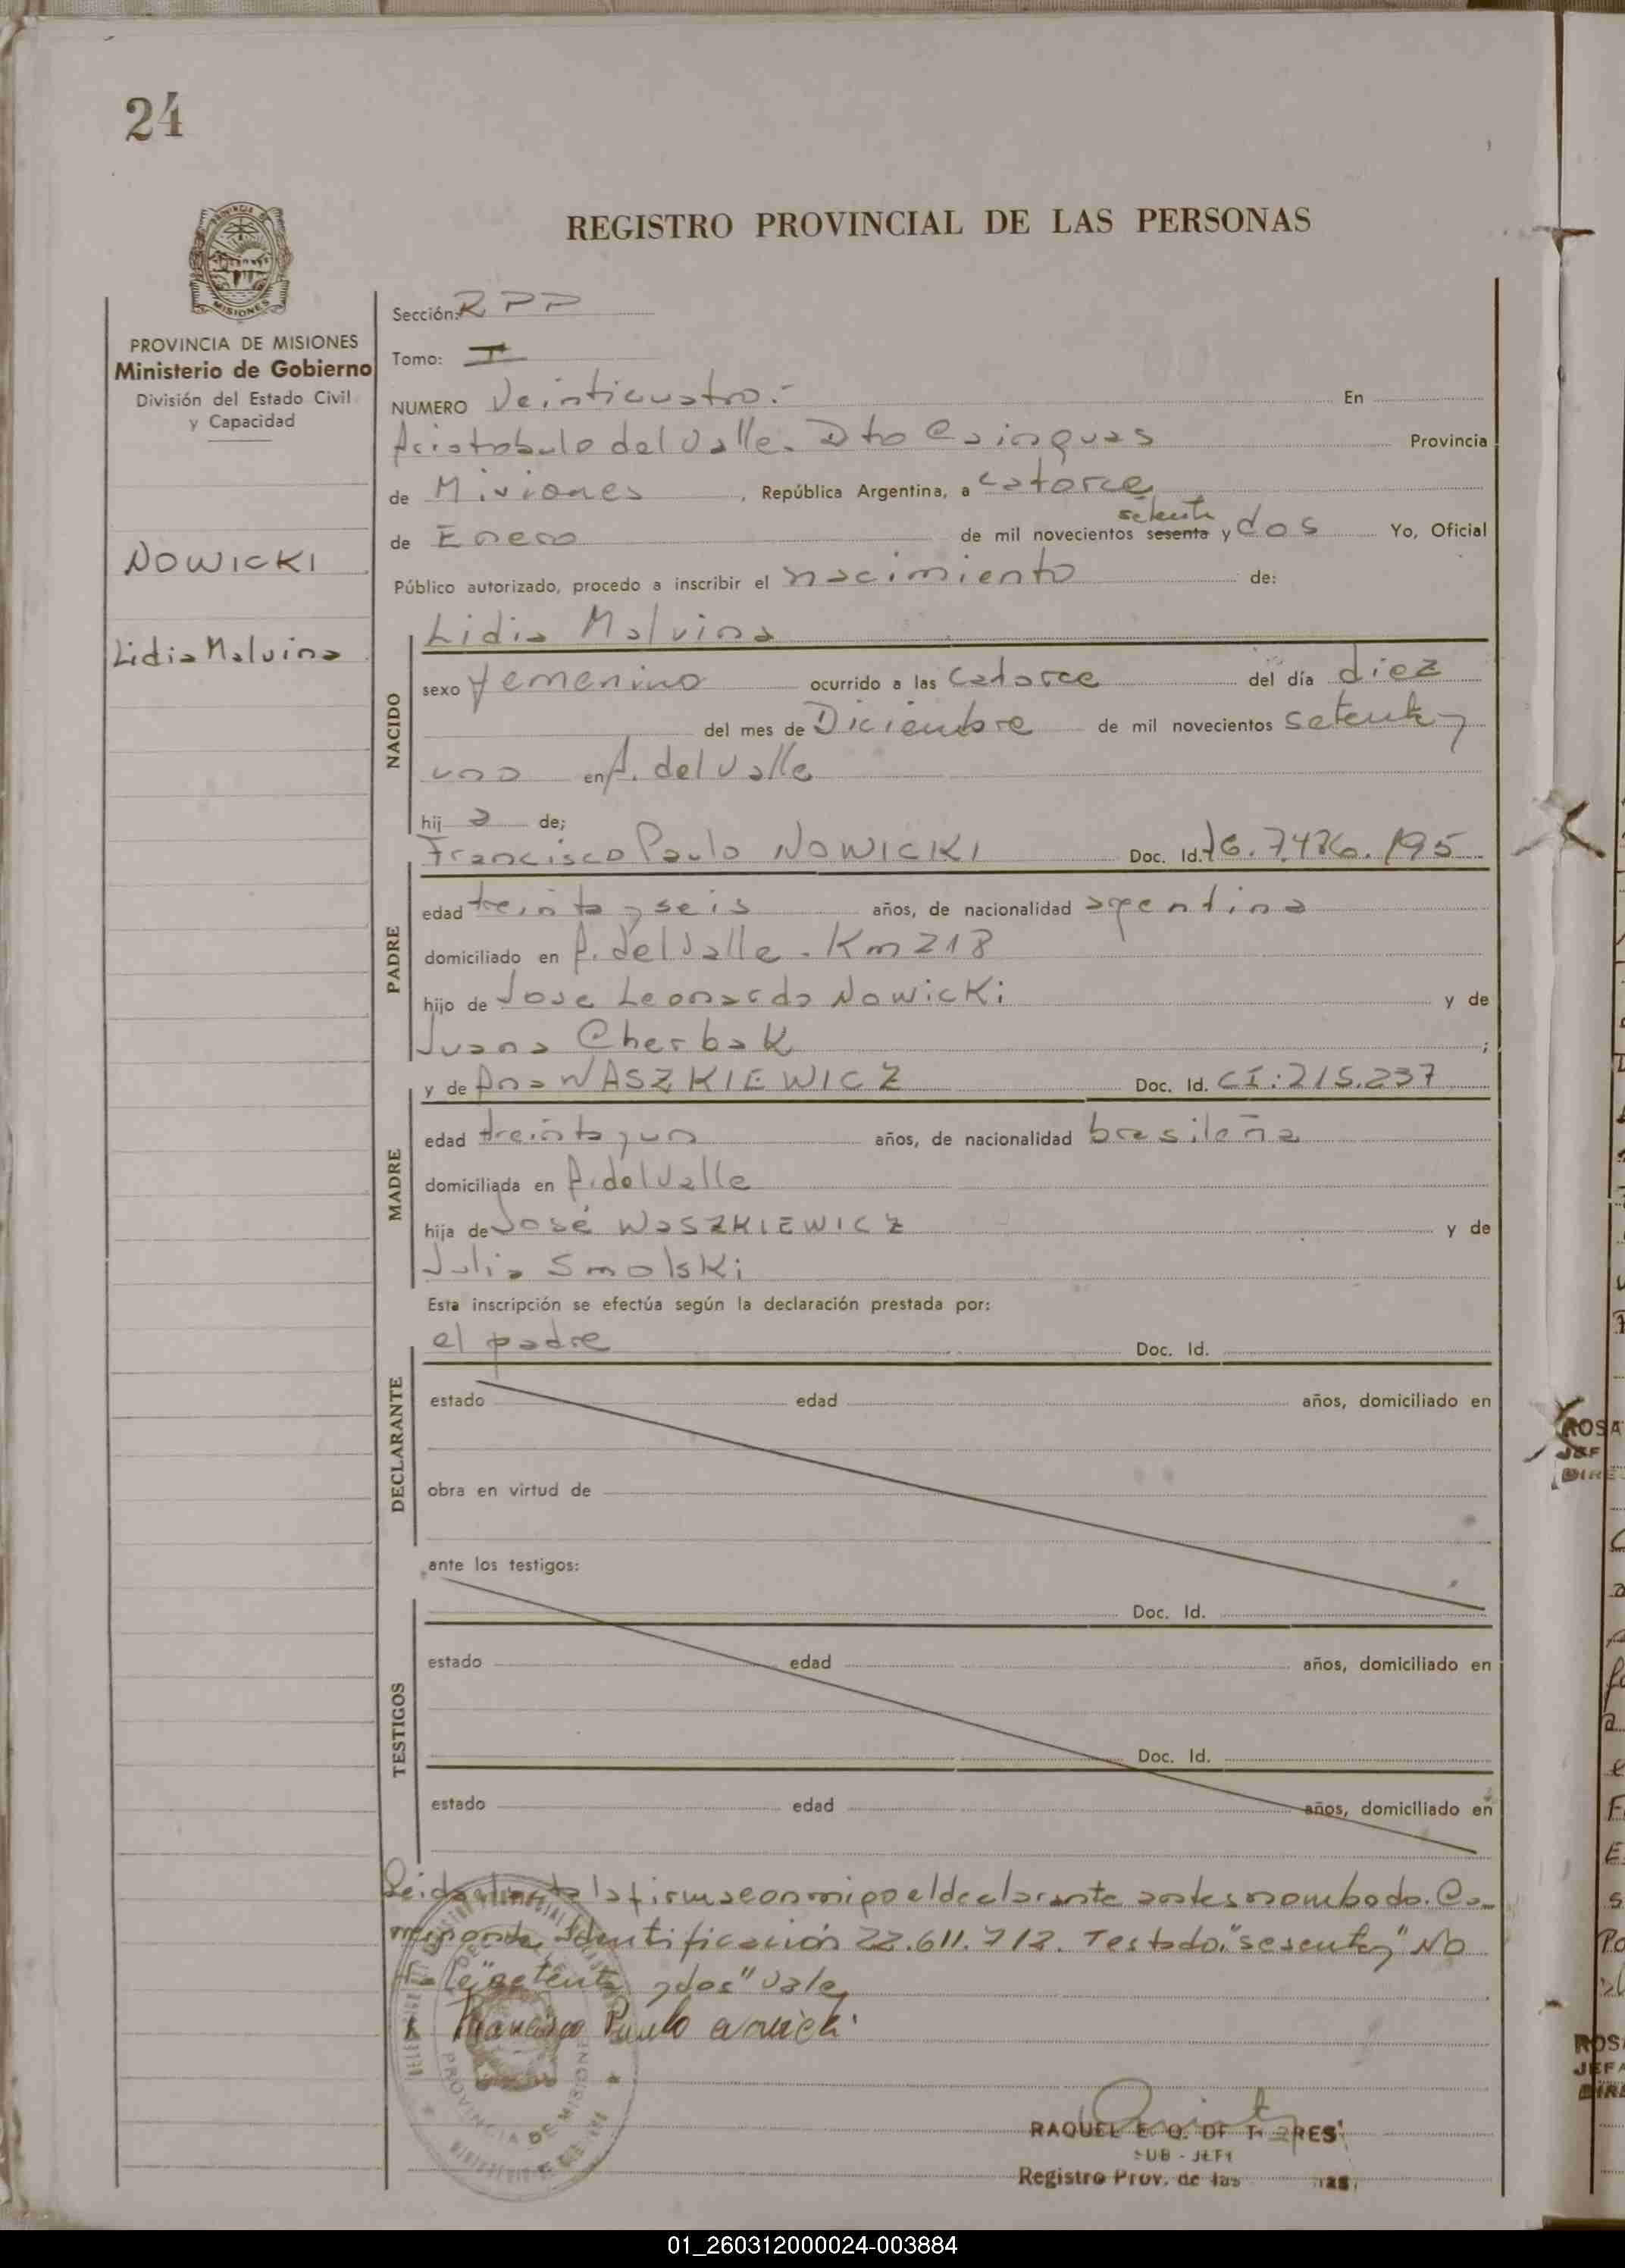 24
REGISTRO PROVINCIAL DE LAS PERSONAS
PROVINCIA DE MISIONES
Ministerio de Gobierno
División del Estado Civil
y Capacidad
NOWICKI
Lidia Malvina
Sección: R P P
Tomo: I
NUMERO Veinticuatro.- En
Aristobulo del Valle. Dto Cainguas Provincia
de Misiones, República Argentina, a catorce
setenta
de Enero de mil novecientos sesenta y dos Yo, Oficial
Público autorizado, procedo a inscribir el nacimiento de:
NACIDO
Lidia Malvina
sexo femenino ocurrido a las catorce del día diez
del mes de Diciembre de mil novecientos setenta y
uno en A. del Valle
hij a de;
PADRE
Francisco Paulo NOWICKI Doc. Id.
edad treinta y seis años, de nacionalidad argentina
domiciliado en A. del Valle. Km 218
hijo de Jose Leonardo Nowicki y de
Juana Cherbak ;
MADRE
y de Ana WASZKIEWICZ Doc. Id. CI: 215.237
edad treinta y un años, de nacionalidad brasileña
domiciliada en A. del Valle
hija de José WaSZKIEWICZ y de
Julia Smolski
Esta inscripción se efectúa según la declaración prestada por:
DECLARANTE
el padre Doc. Id.
estado edad años, domiciliado en
obra en virtud de
ante los testigos:
TESTIGOS
Doc. Id.
estado edad años, domiciliado en
Doc. Id.
estado edad años, domiciliado en
Leida el acta la firma conmigo el declarante antes nombado. Co
rresponde Identificación 22.611.712. Testado: "sesenta y" No
Vale "setenta y dos" Vale
Francisco Paulo
PROVINCIA DE MISIONES
RAQUEL E. Q. DE
SUB - JEFE
Registro Prov. de las
ROSA
JEF
DIRE
JEFA
01_260312000024-003884